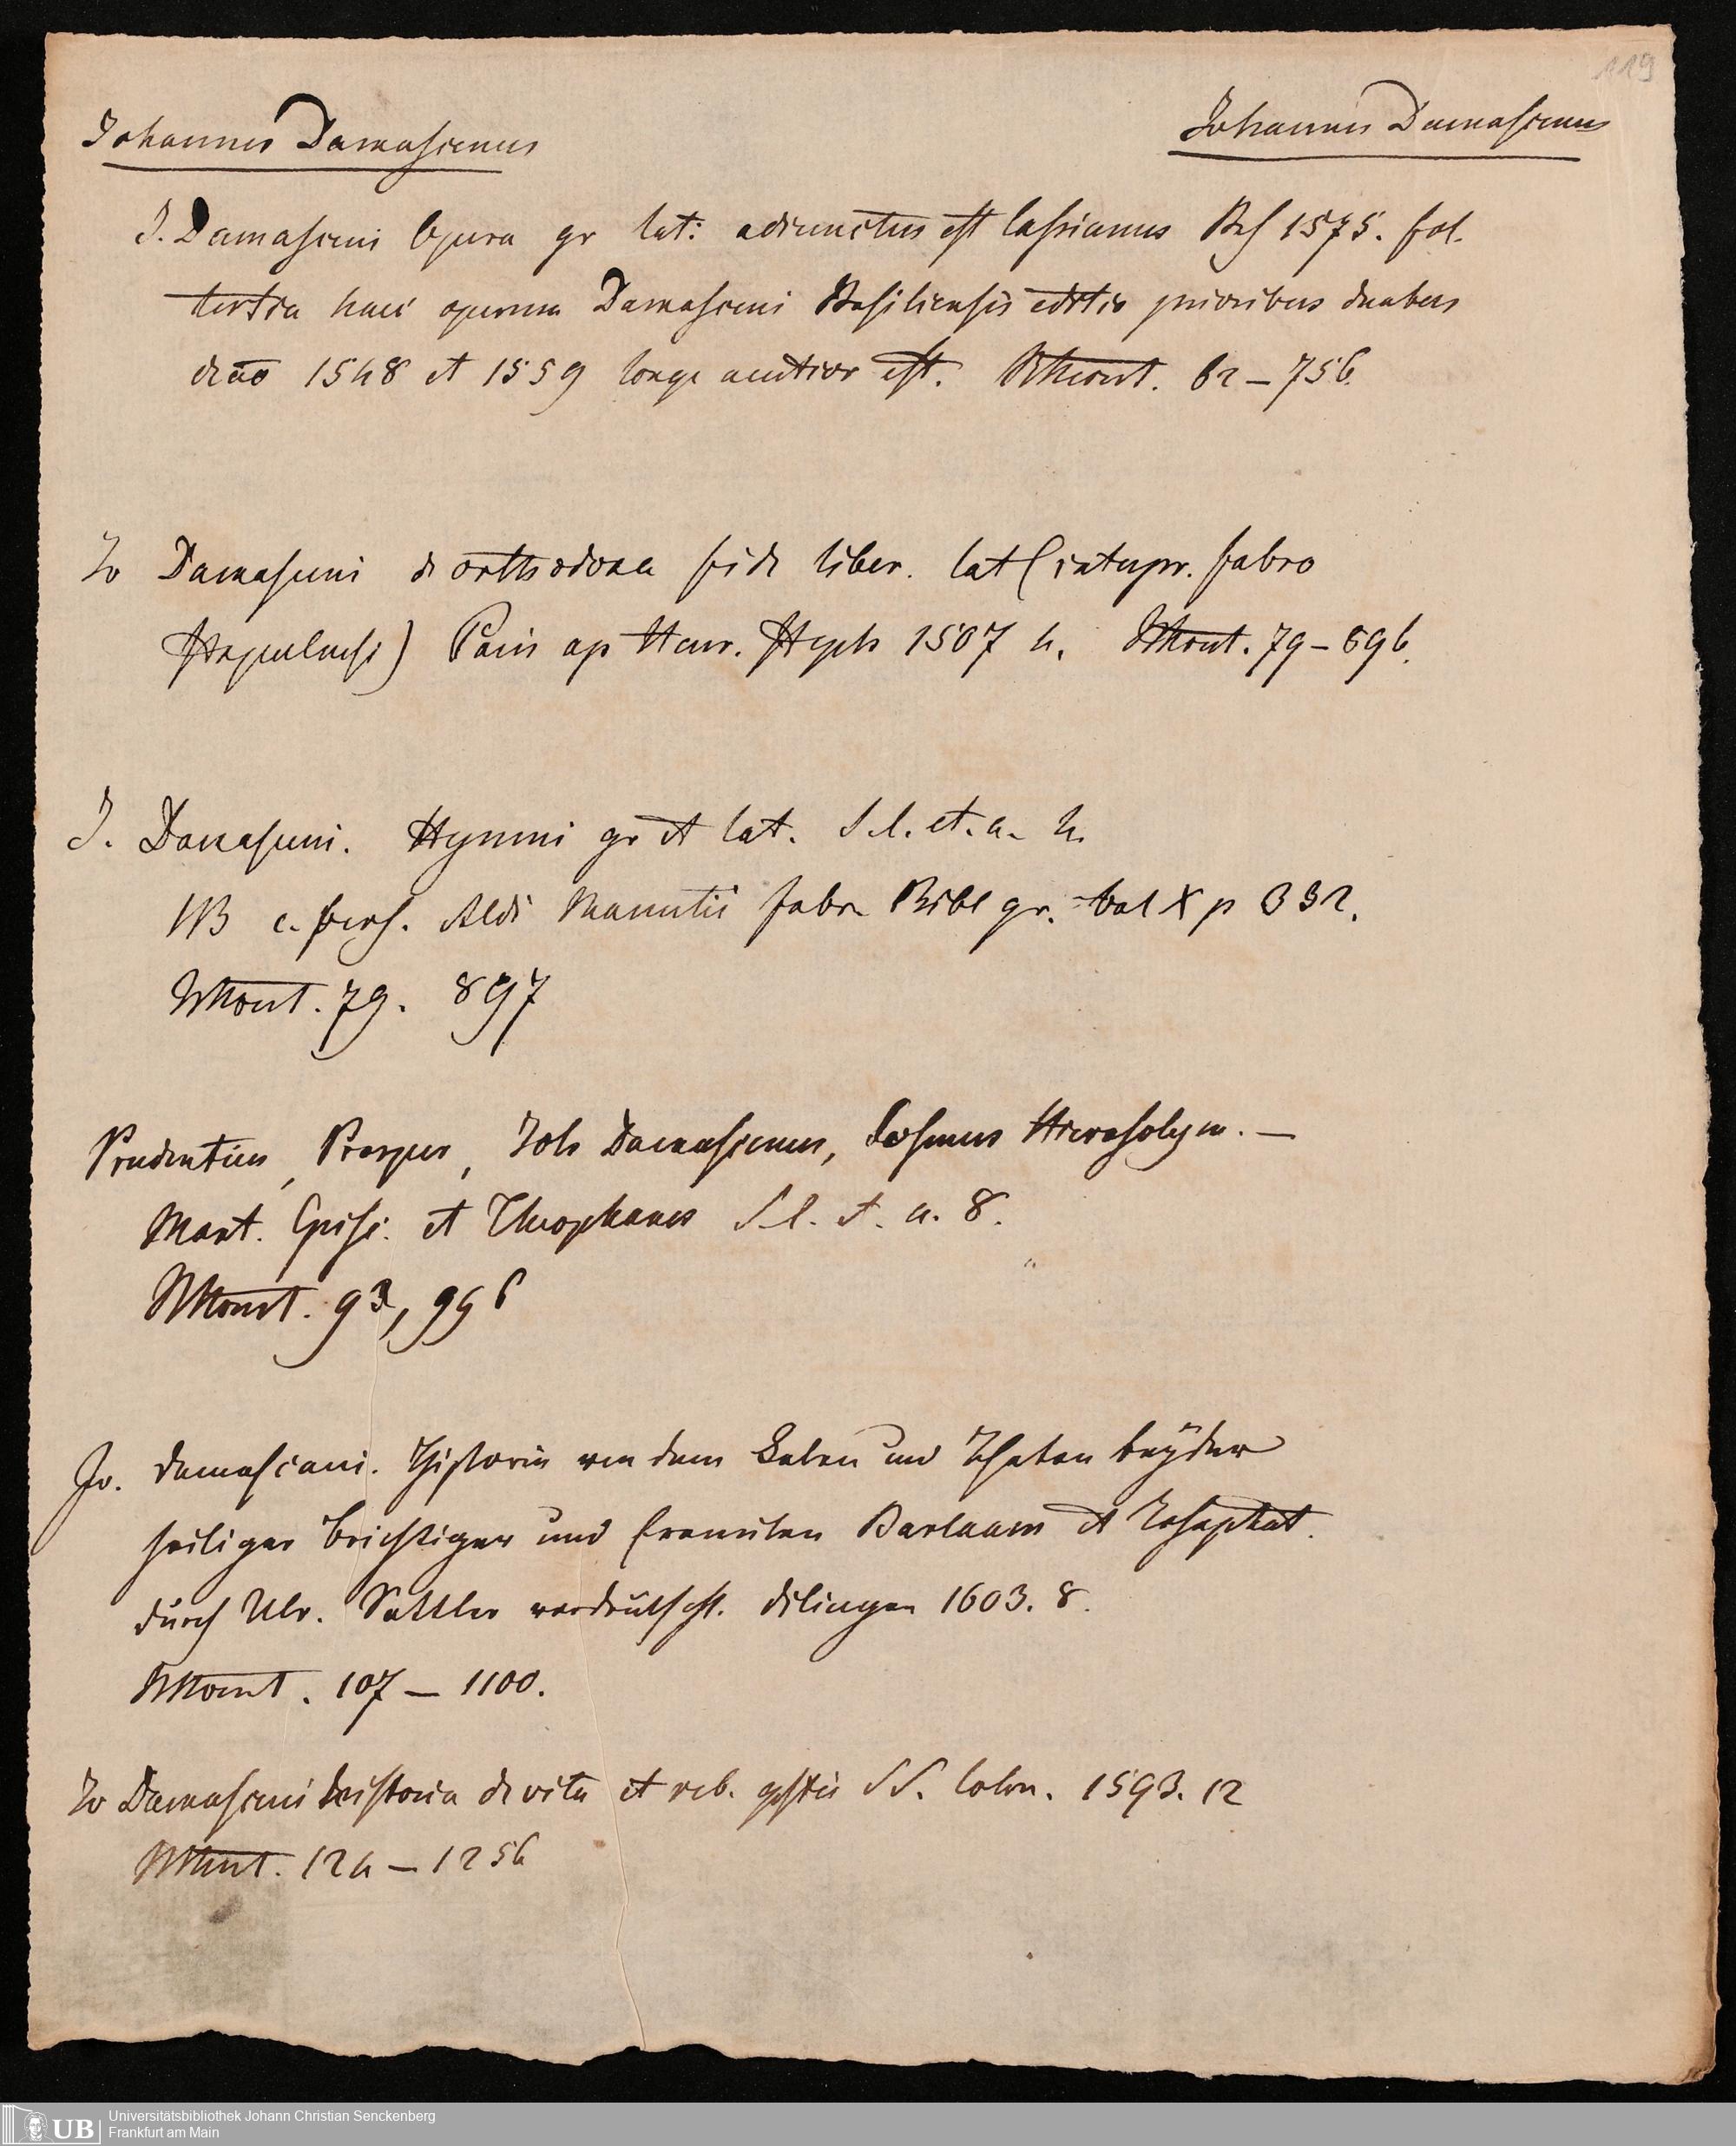 119
Johannes Damascenus
Johannes Damascenus
J. Damasceni Opera gr lat: adiunctus est Cassianus Bas 1575. fol.
tertia haec operum Damasceni Basiliensis editio prioribus duabus
de ao 1548 et 1559 longe auctior est. 62 – 756.
Jo Damasceni de orthodoxa fide liber. lat (interpr. Fabro
Stapulensi) Paris ap Henr. Steph 1507 4. 79 – 896.
J. Damasceni. Hymni gr et lat. S. l. et. a. 4.
NB e. Aldi Manutii Fabr. Bibl gr. vol X p 332.
79. 897
Prudentius, Prosper, Joh Damascenus, Cosmus Hierosolym. —
Mart. Episc. et Theophanes S. l. et. a. 8.
93, 996
Jo. Damasceni. Historia von dem Leben und Thaten beyder
heiligen Beichtiger und Eremiten Barlaam et Josaphat.
durch Ulr. Sattler verdeutscht. Dilingen 1603. 8.
107 — 1100.
Jo Damasceni historia de vita et reb. gestis SS. Colon. 1593. 12
124 — 1254
UB Universitätsbibliothek Johann Christian Senckenberg
Frankfurt am Main